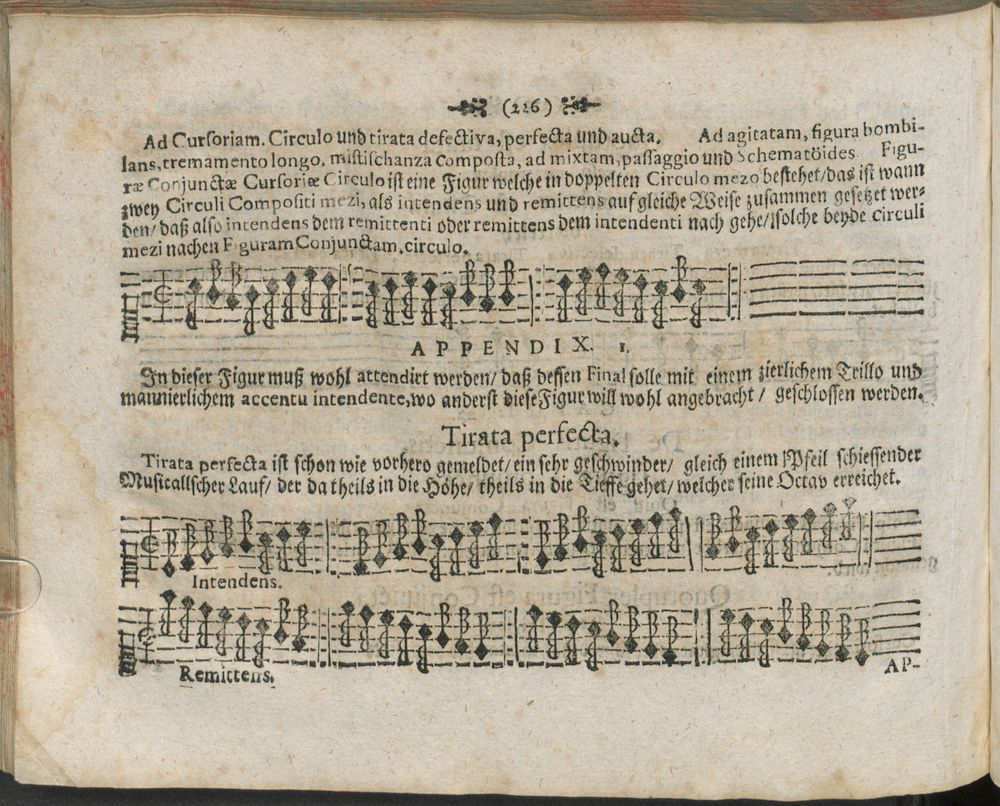 (226)
Ad Cursoriam. Circulo und tirata defectiva, perfecta und aucta. Ad agitatam, figura bombi-
lans, tremamento longo, mistischanza Composta, ad mixtam, passaggio und Schematöides. Figu-
ræ Conjunctæ Cursoriæ Circulo ist eine Figur welche in doppelten Circulo mezo bestehet/ das ist wann
zwey Circuli Compositi mezi, als intendens und remittens auf gleiche Weise zusammen gesetzet wer-
den/ daß also intendens dem remittenti oder remittens dem intendenti nach gehe/ solche beyde circuli
mezi nachen Figuram Conjunctam, circulo.
APPENDIX. 1.
In dieser Figur muß wohl attendirt werden/ daß dessen Final solle mit einem zierlichem Trillo und
mannierlichem accentu intendente, wo anderst diese Figur will wohl angebracht/ geschlossen werden.
Tirata perfecta.
Tirata perfecta ist schon wie vorhero gemeldet/ ein sehr geschwinder/ gleich einem Pfeil schiessender
Musicallscher Lauf/ der da theils in die Höhe/ theils in die Tieffe gehet/ welcher seine Octav erreichet.
Intendens.
Remittens.
AP-